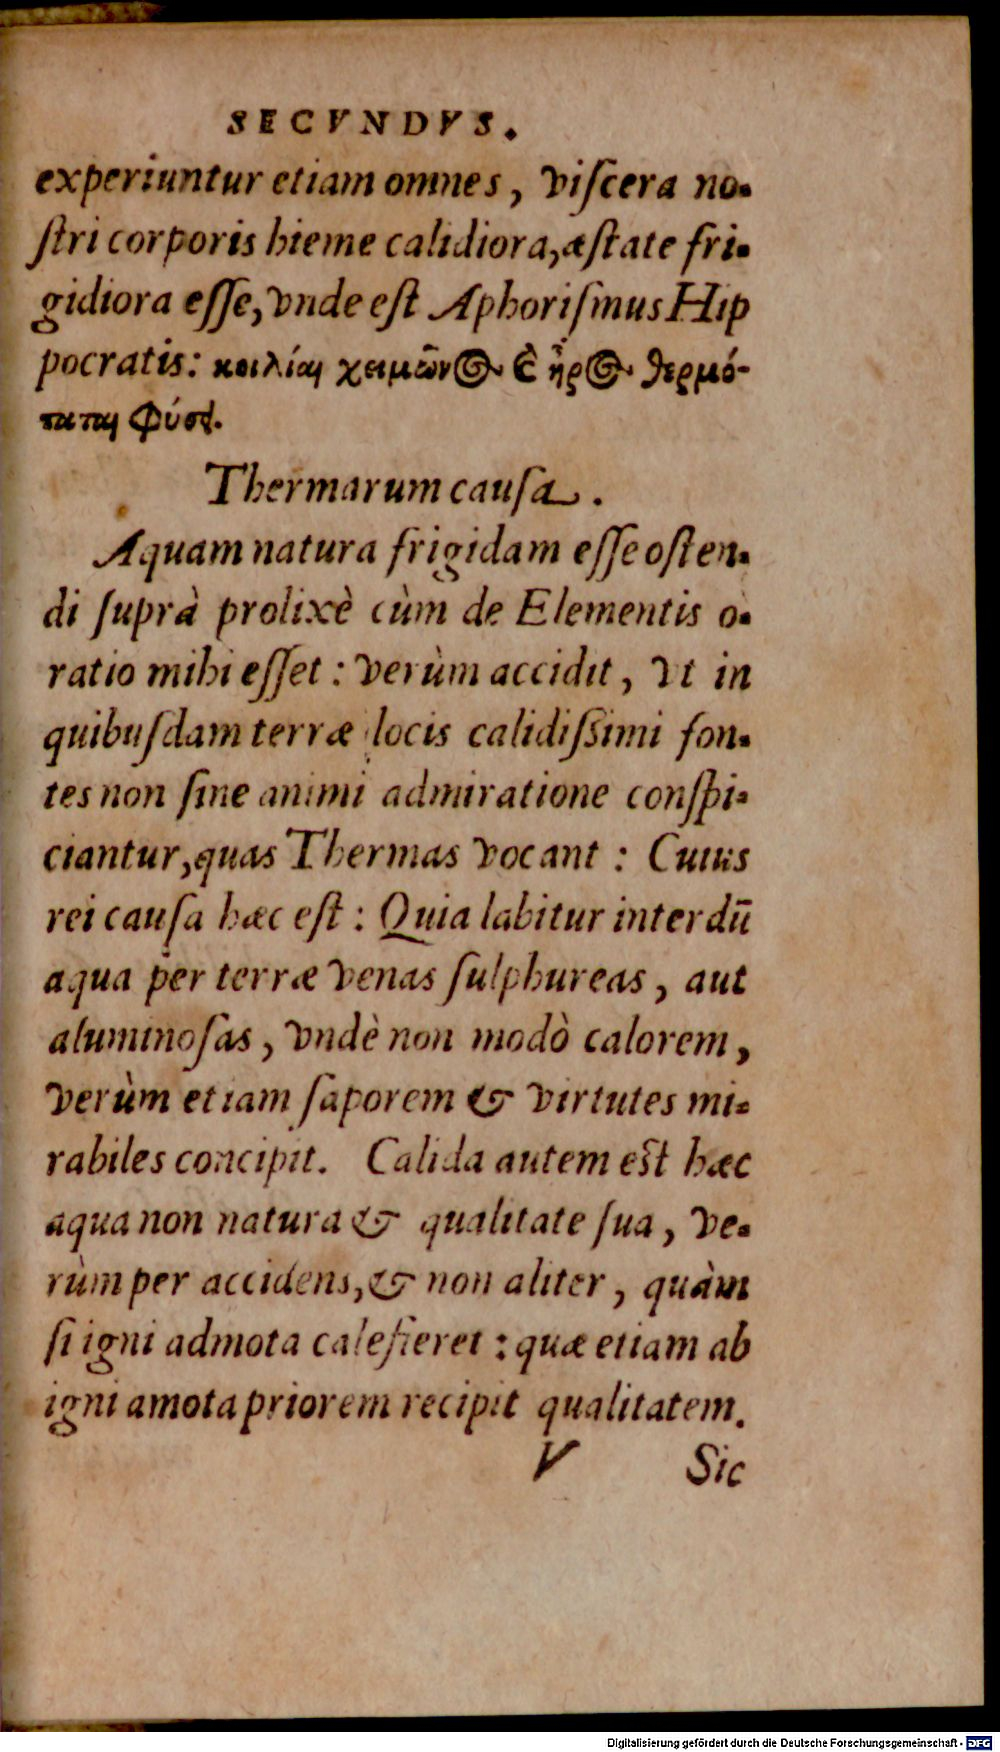 SECVNDVS.
experiuntur etiam omnes, viſcera no-
ſtri corporis hieme calidiora, æſtate fri-
gidiora eſſe, vnde eſt Aphoriſmus Hip
pocratis: κοιλίαι χειμῶνος ἐ ἦρος θερμό-
ταται φύσει.
Thermarum cauſa.
Aquam natura frigidam eſſe oſten-
di ſuprà prolixè cùm de Elementis o-
ratio mihi eſſet: verùm accidit, vt in
quibuſdam terræ locis calidiſsimi fon-
tes non ſine animi admiratione conſpi-
ciantur, quas Thermas vocant: Cuius
rei cauſa hæc eſt: Quia labitur interdũ
aqua per terræ venas ſulphureas, aut
aluminoſas, vndè non modò calorem,
verùm etiam ſaporem & virtutes mi-
rabiles concipit. Calida autem eſt hæc
aqua non natura & qualitate ſua, ve-
rùm per accidens, & non aliter, quàm
ſi igni admota calefieret: quæ etiam ab
igni amota priorem recipit qualitatem.
V Sic
Digitalisierung gefördert durch die Deutsche Forschungsgemeinschaft - DFG